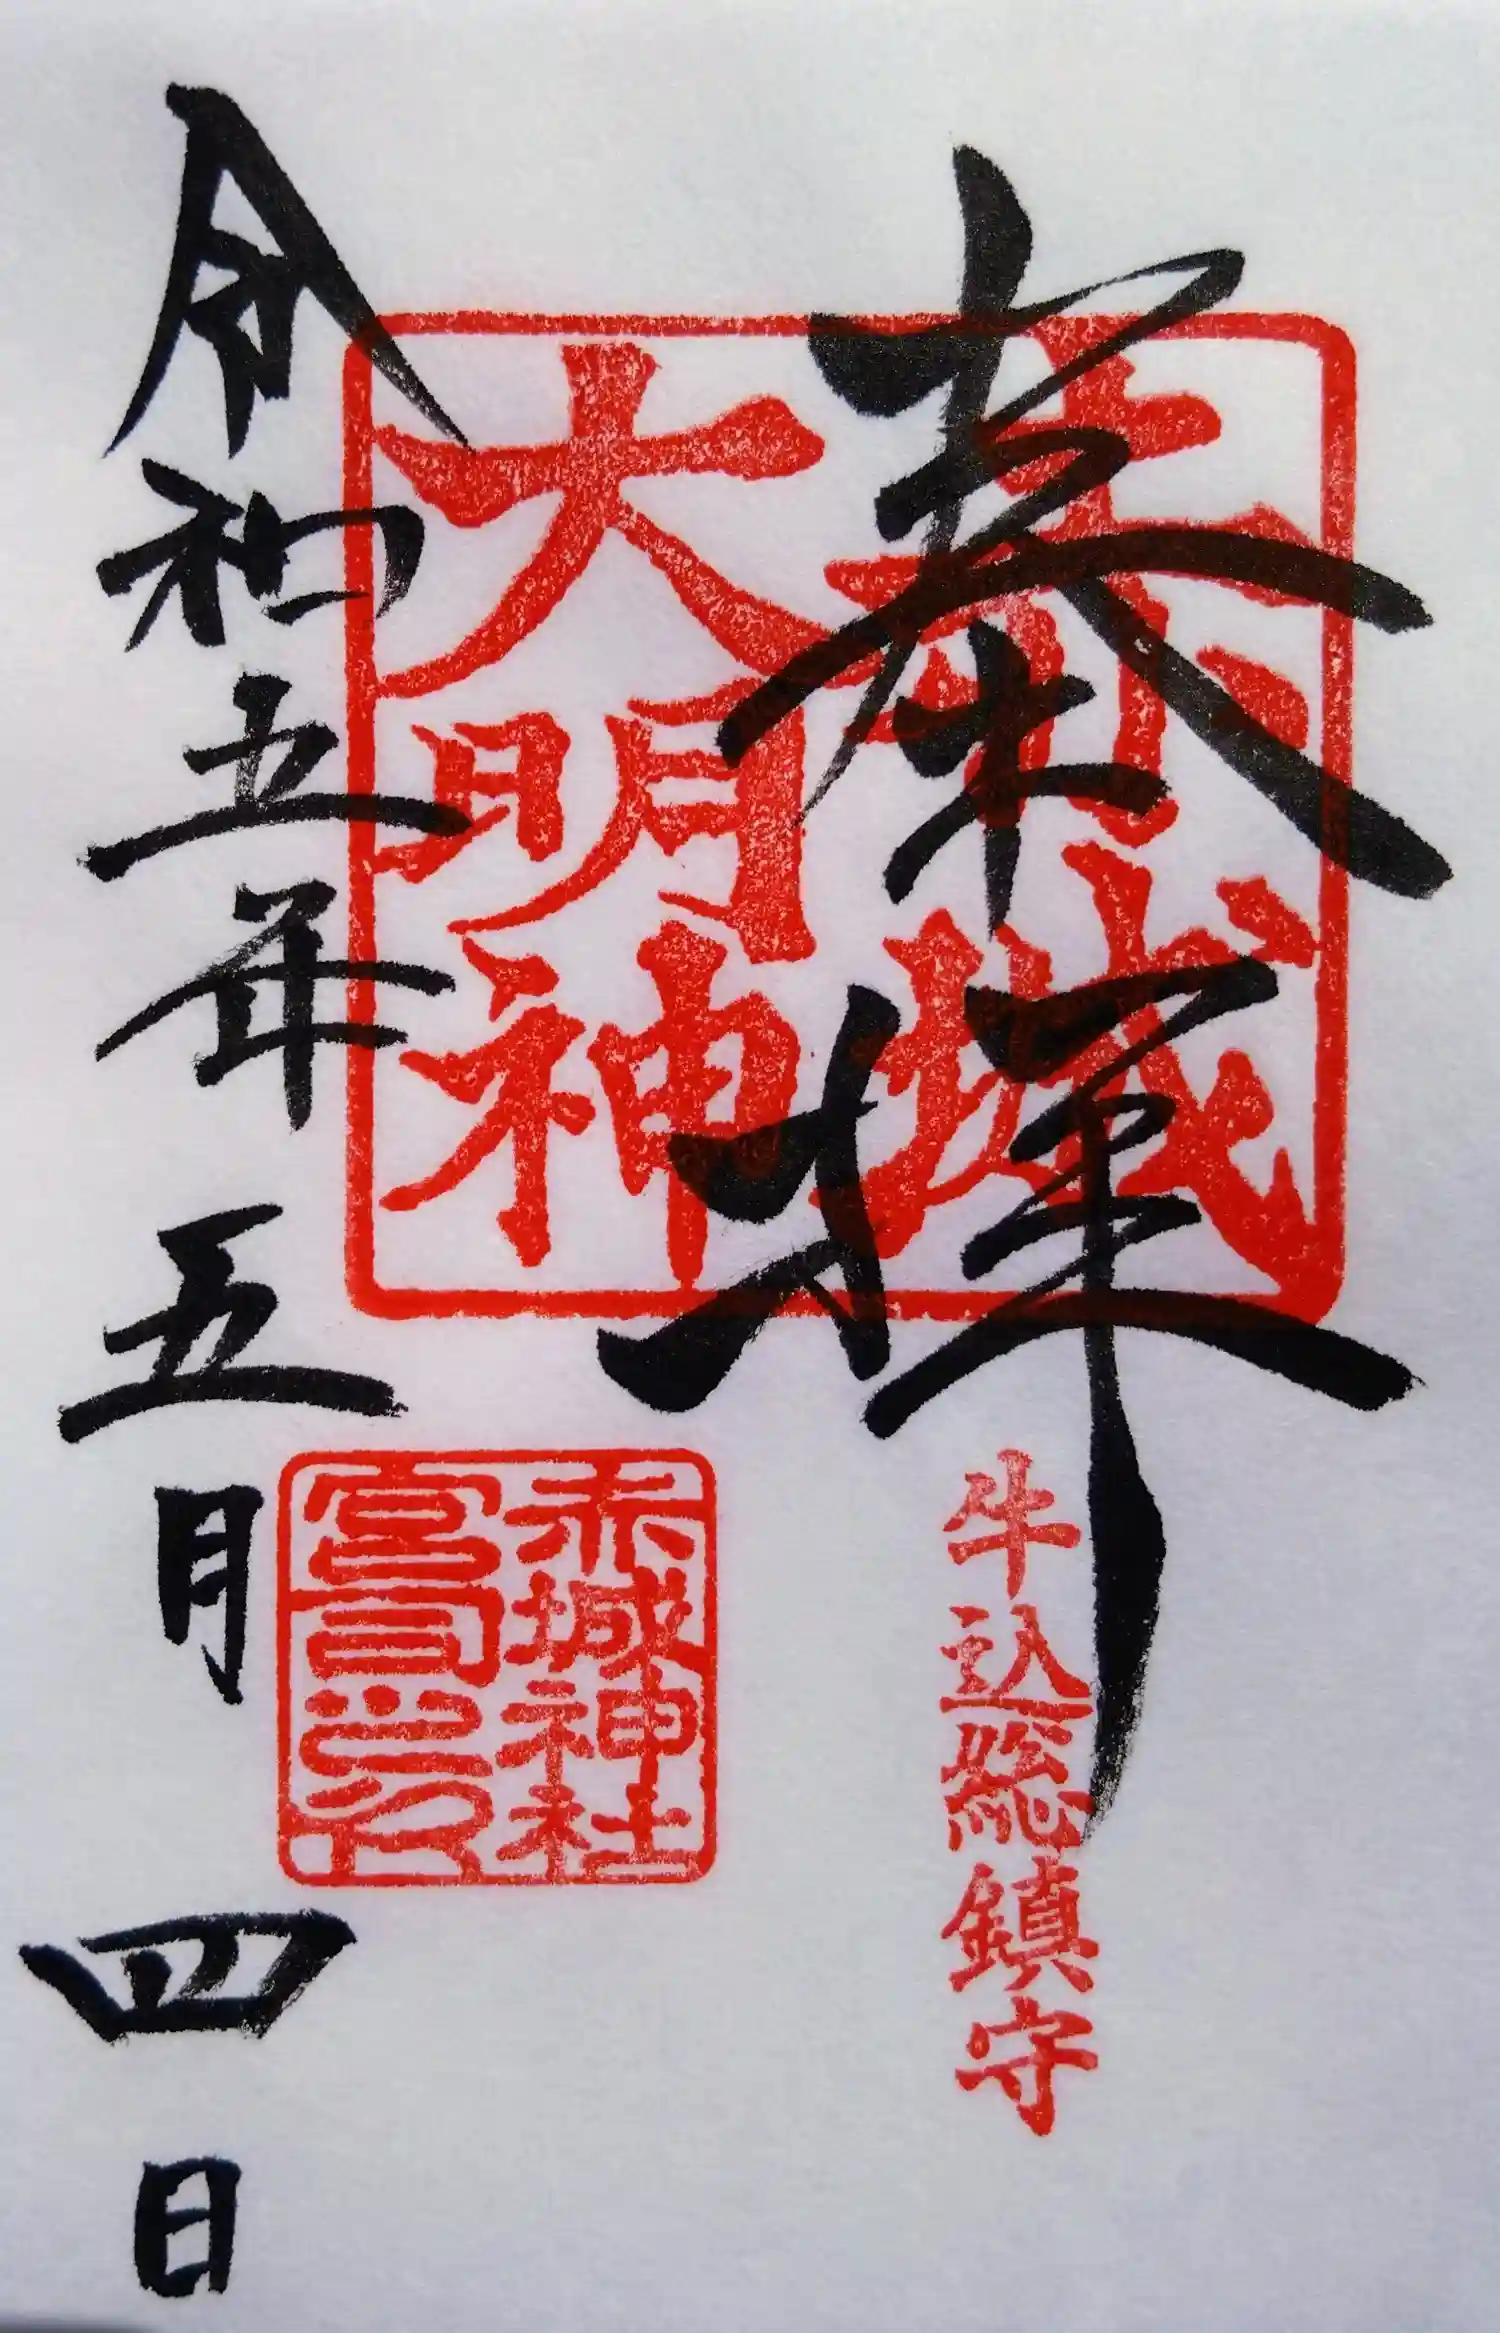 奉拝
赤城
大明神
牛込総鎮守
赤城神社
宮司之印
令和五年五月四日